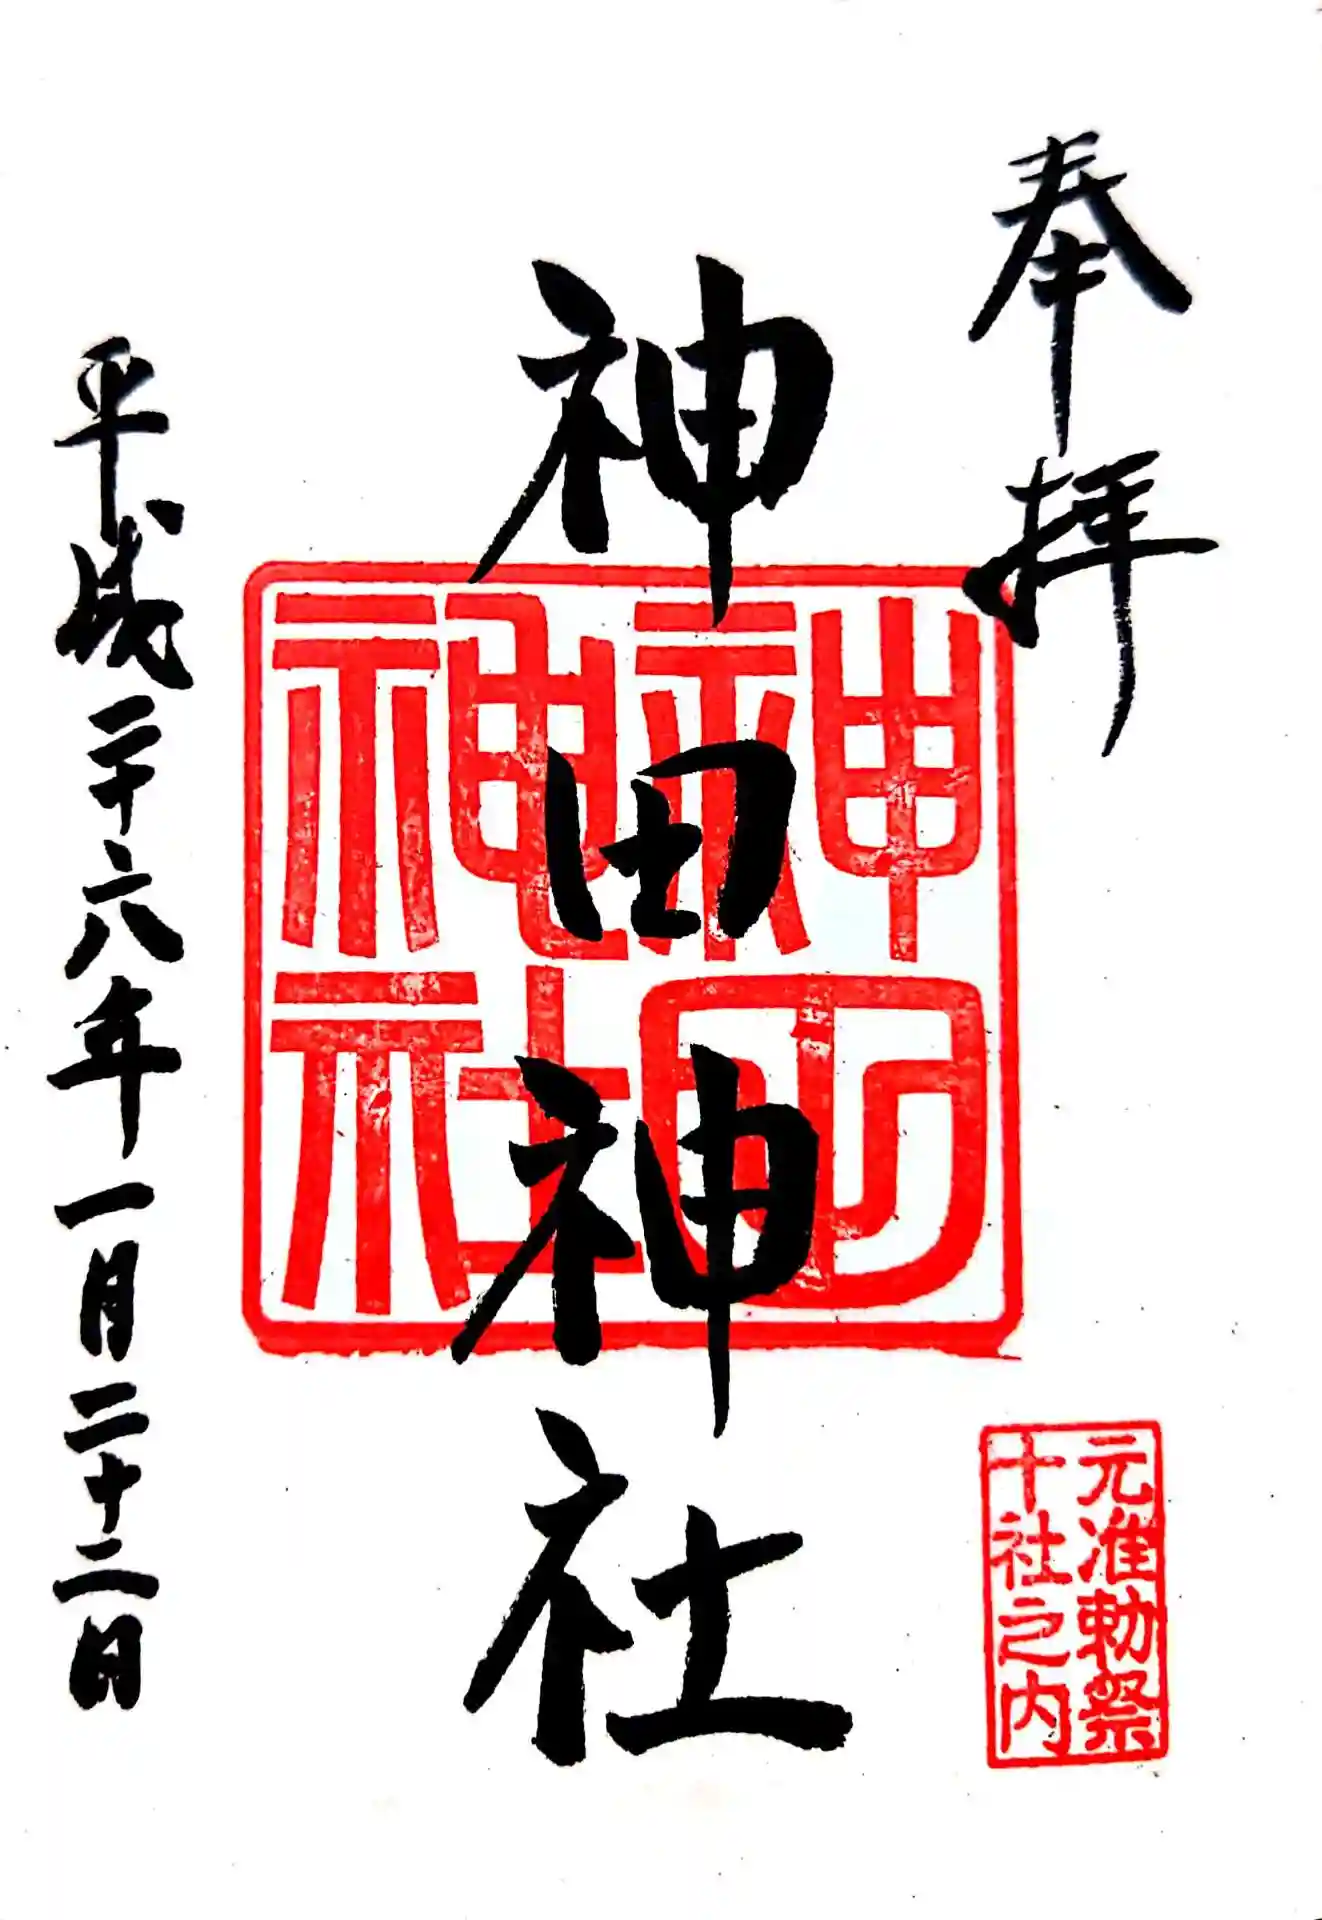 奉拝
元准勅祭
十社之内
神田神社
神田神社
平成二十六年一月二十二日